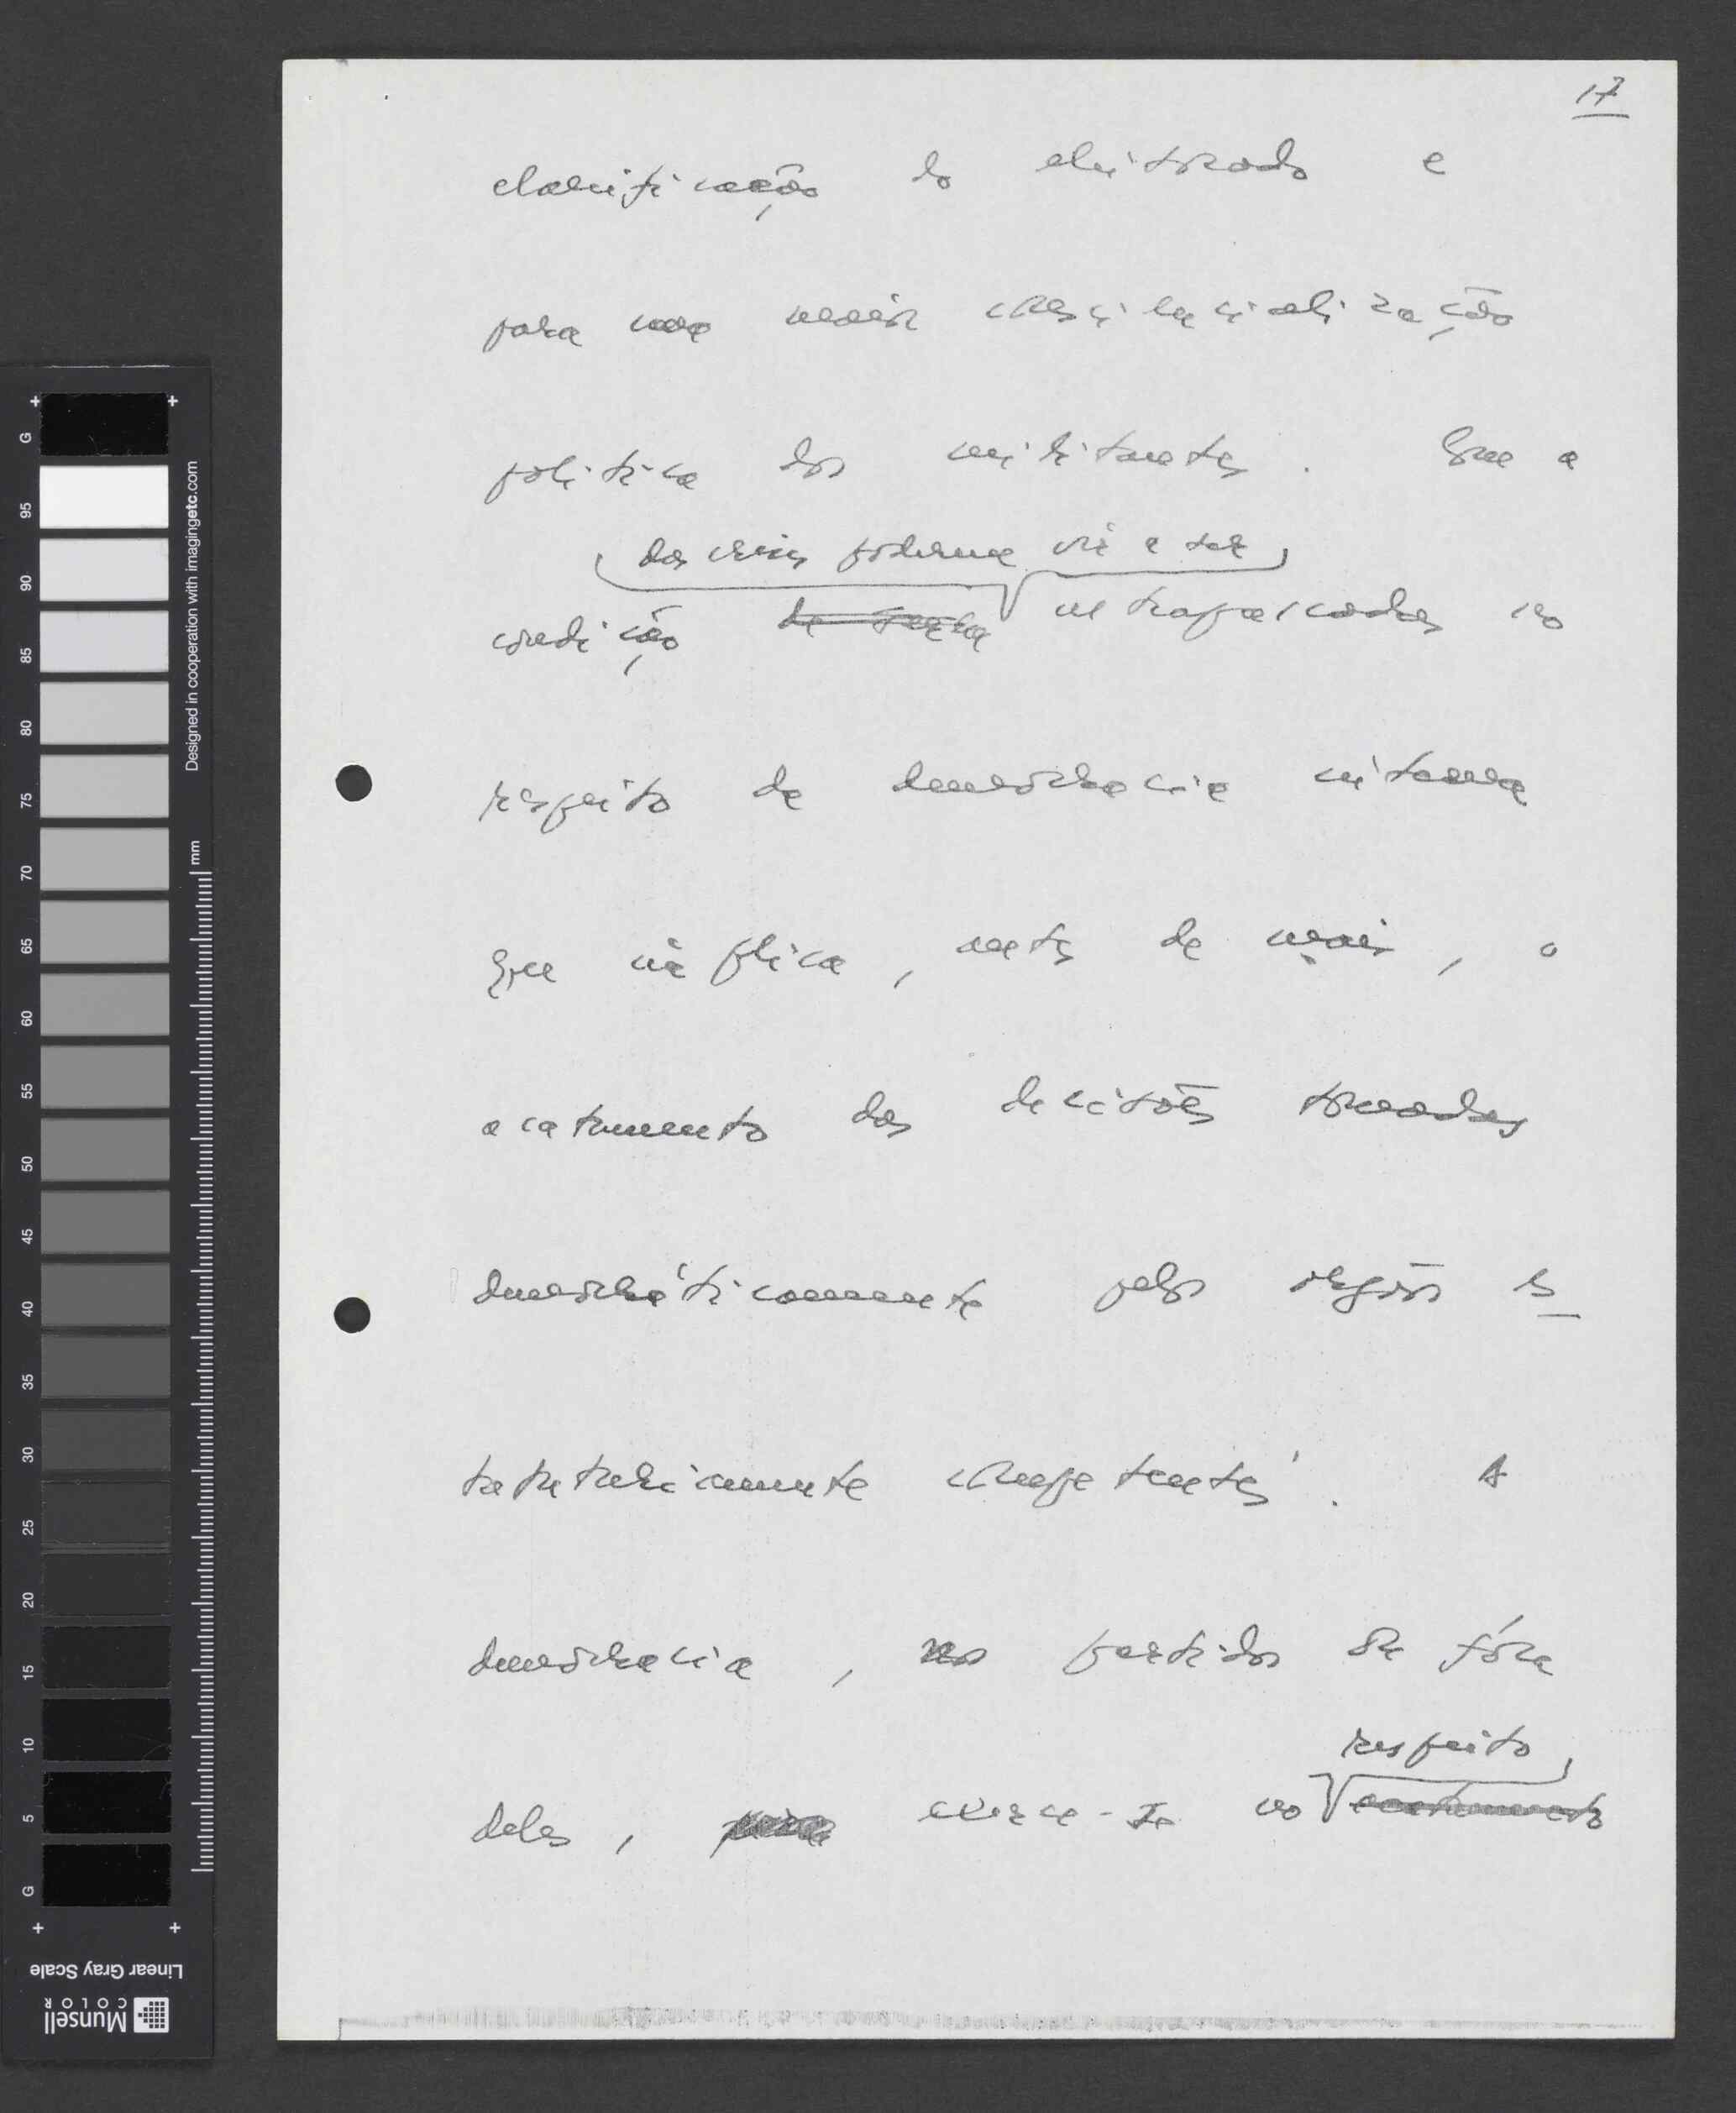 17
clarificação do eleitorado e
para uma maior consciencialização
política dos militantes. Que a
das crises poderemos vir a ser
condição ultrapassadas no
respeito da democracia interna
que implica, antes de mais, o
acatamento das decisões tomadas
democráticamente pelos orgãos es
tatutáriamente competentes. A
democracia, nos partidos ou fóra
deles, exerce-se no
respeito
acatamento
G 95 90 85 80 75 70 65 60 55 50 45 40 35 30 25 20 15 10 5 G
mm
Designed in cooperation with imagingetc.com
Linear Gray Scale
Munsell
COLOR